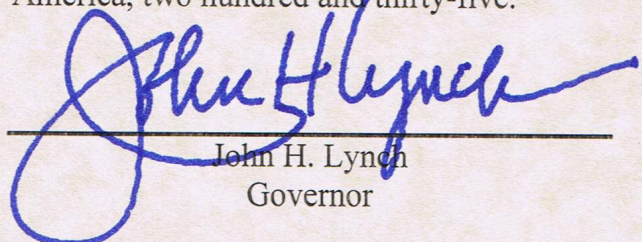 America, two hundred and thirty-five.
John H Lynch
John H. Lynch
Governor